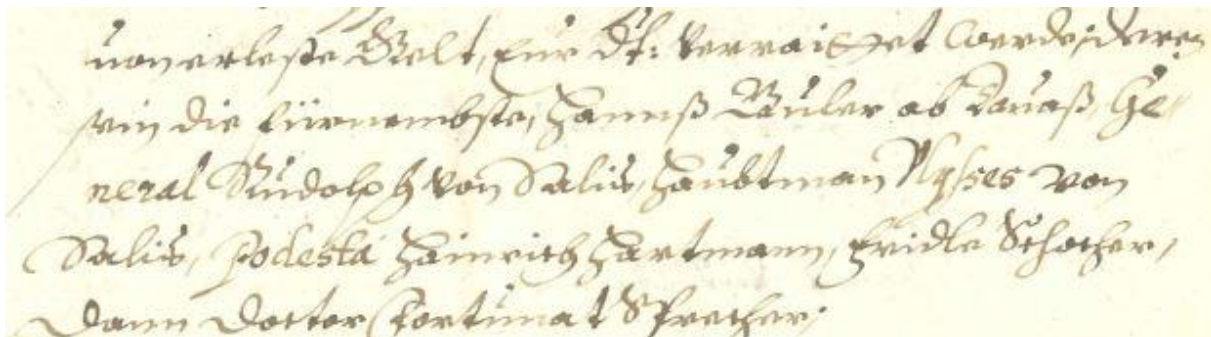 Gelt, für werde, deren
sein die fürnembste, Hannß Guler ab Dauaß, Ge-
neral Rudolph von Salis, Haubtman Ulysses von
Salis, Podestà Hainrich Hartmann, Fridle Schocher,
Dann Doctor Fortunat Sprecher,